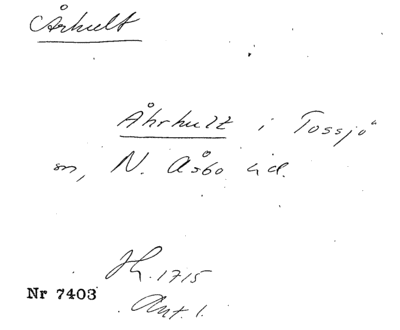 Århult
Åhrhult i Tossjö
sn, N. Åsbo hd.
Jb. 1715
Nr 7403
Ant. 1.